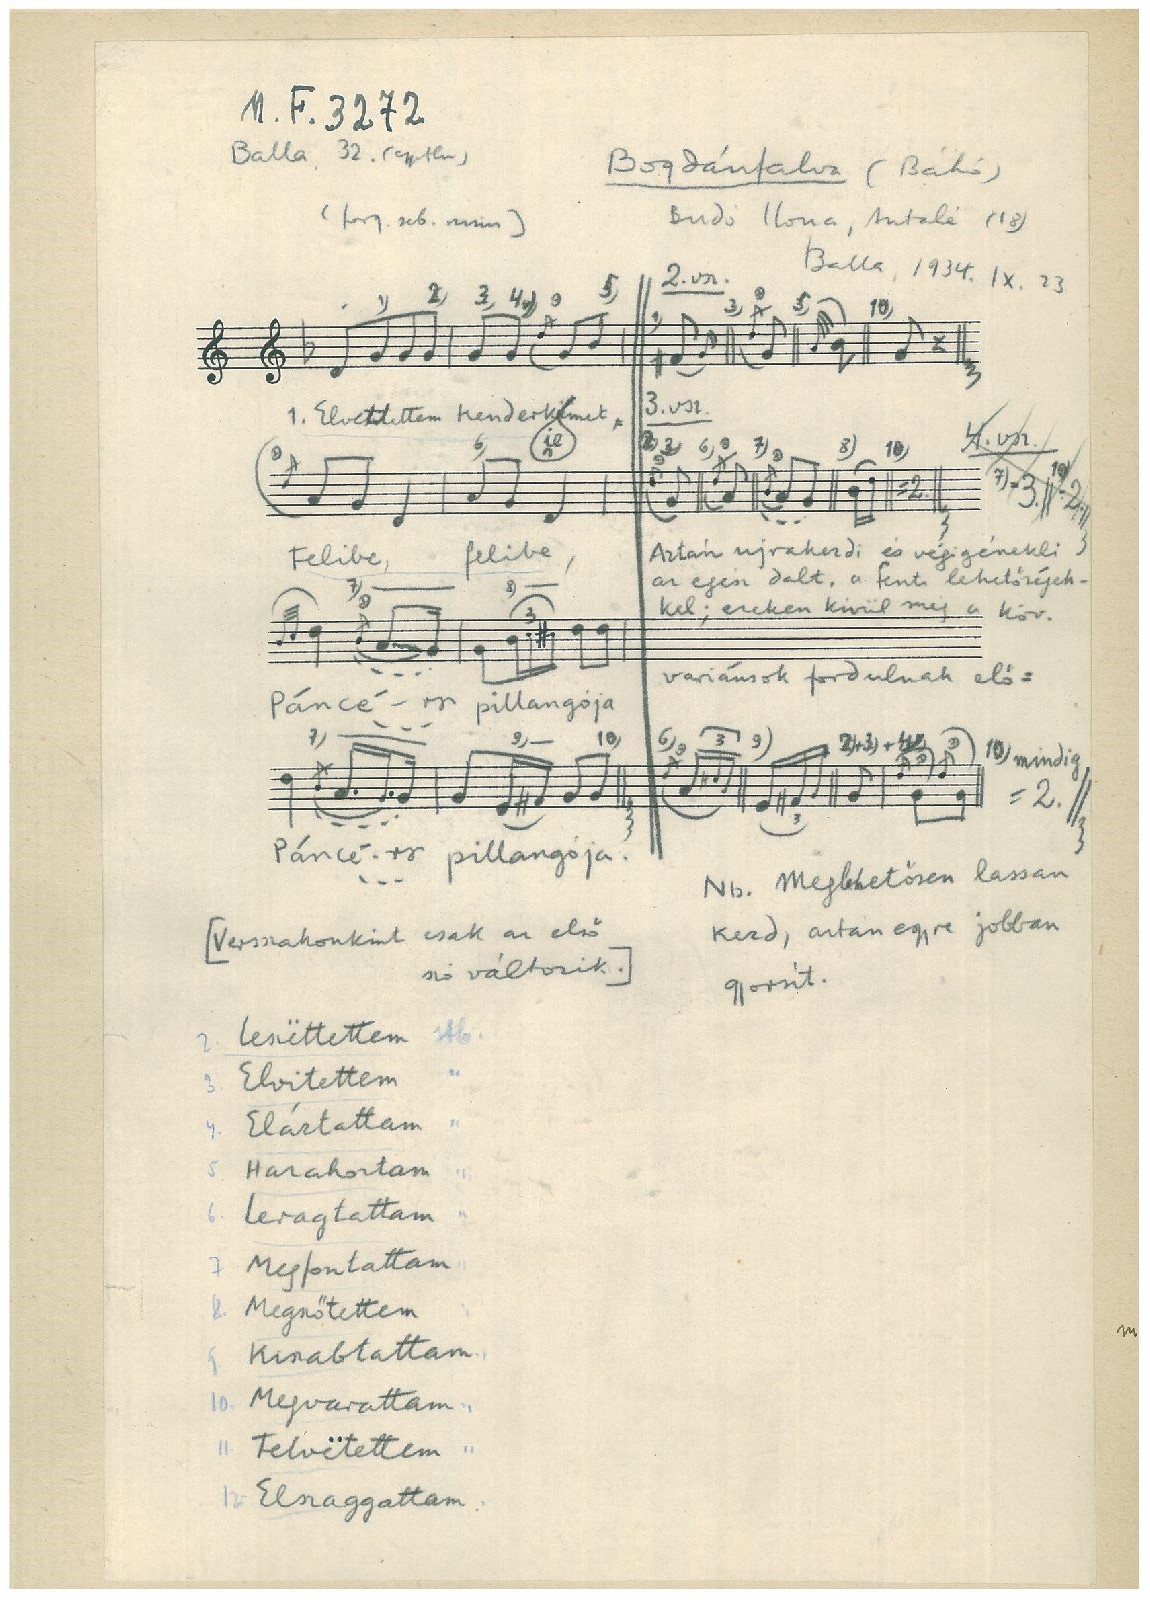 M. F. 3272
Balla 32.
Bogdánfalva (Bákó)
Budó Ilona, Antalé (18)
Balla, 1934. IX. 23
1) 2) 3) 4) 5) 2. vsz. 3) 5) 10)
1. Elvettettem kenderkémet,
3. vsz.
6) 6) 7) 8) 10) = 2. 4. vsz. 7) = 3. 10) = 2.
Felibe, felibe,
Aztán ujrakezdi és végigénekli
az egész dalt, a fenti lehetőségek-
kel; ezeken kivül még a köv.
variánsok fordulnak elő =
7) 8) 3
Páncé - rsz pillangója
7) 9) 10) 6) 3 9) 3 2)+3)+4) 10) mindig
= 2.
Páncé - rsz pillangója.
Nb. Meglehetősen lassan
kezd, aztán egyre jobban
gyorsít.
[Versszakonkint csak az első
szó változik.]
2. Leszëttettem stb.
3. Elvitettem "
4. Eláztattam "
5. Hazahoztam "
6. Leragtattam "
7 Megfontattam "
8. Megszőtettem "
9 Kiszabtattam "
10. Megvarattam "
11 Felvëtettem "
12 Elszaggattam.